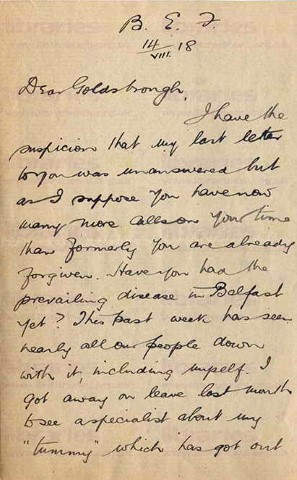 B. E. F.
14/VIII. 18
Dear Goldsbrough,
I have the
suspicion that my last letter
to you was unanswered but
as I suppose you have now
many more calls on your time
than formerly you are already
forgiven. Have you had the
prevailing disease in Belfast
yet? This past week has seen
nearly all our people down
with it, including myself. I
got away on leave last month
to see a specialist about my
"tummy" which has got out